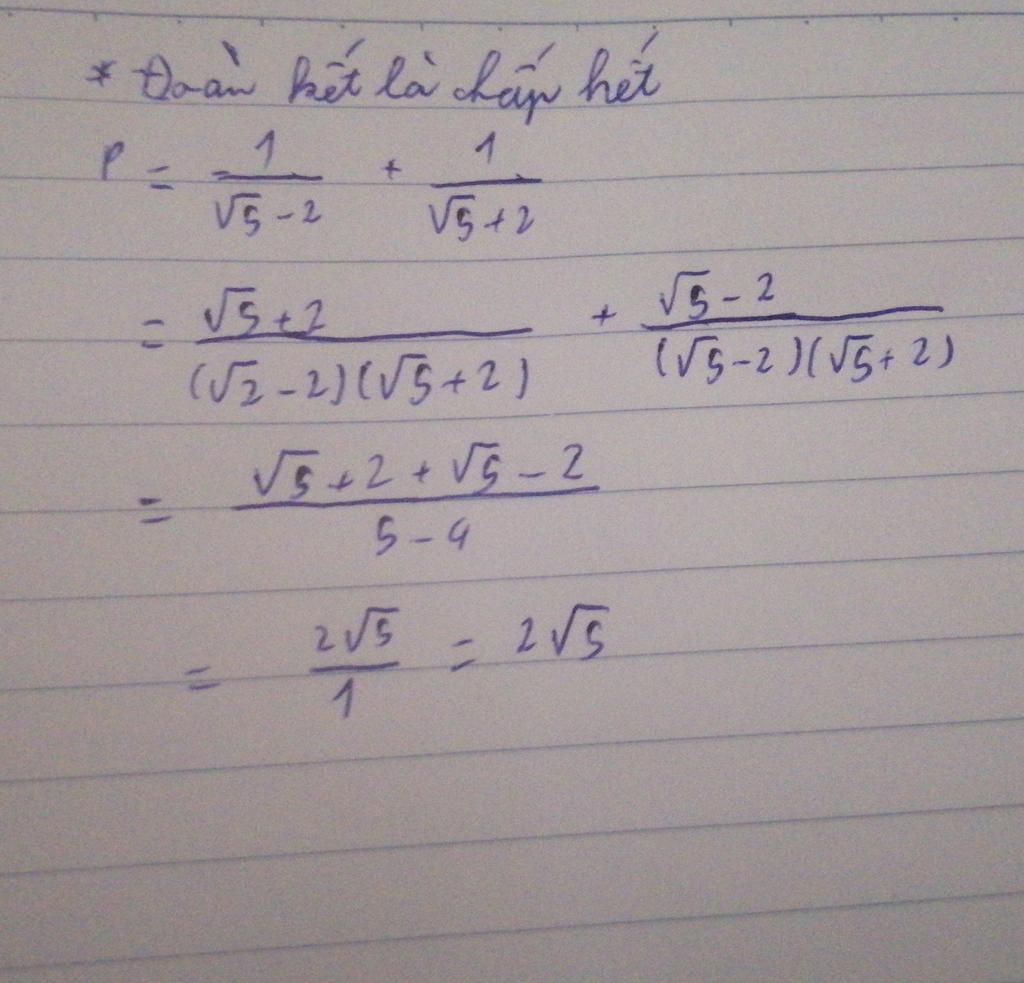 * Đoàn kết là chấp hết
P = 1/(√5 - 2) + 1/(√5 + 2)
= (√5 + 2)/((√2 - 2)(√5 + 2)) + (√5 - 2)/((√5 - 2)(√5 + 2))
= (√5 + 2 + √5 - 2)/(5 - 4)
= 2√5/1 = 2√5